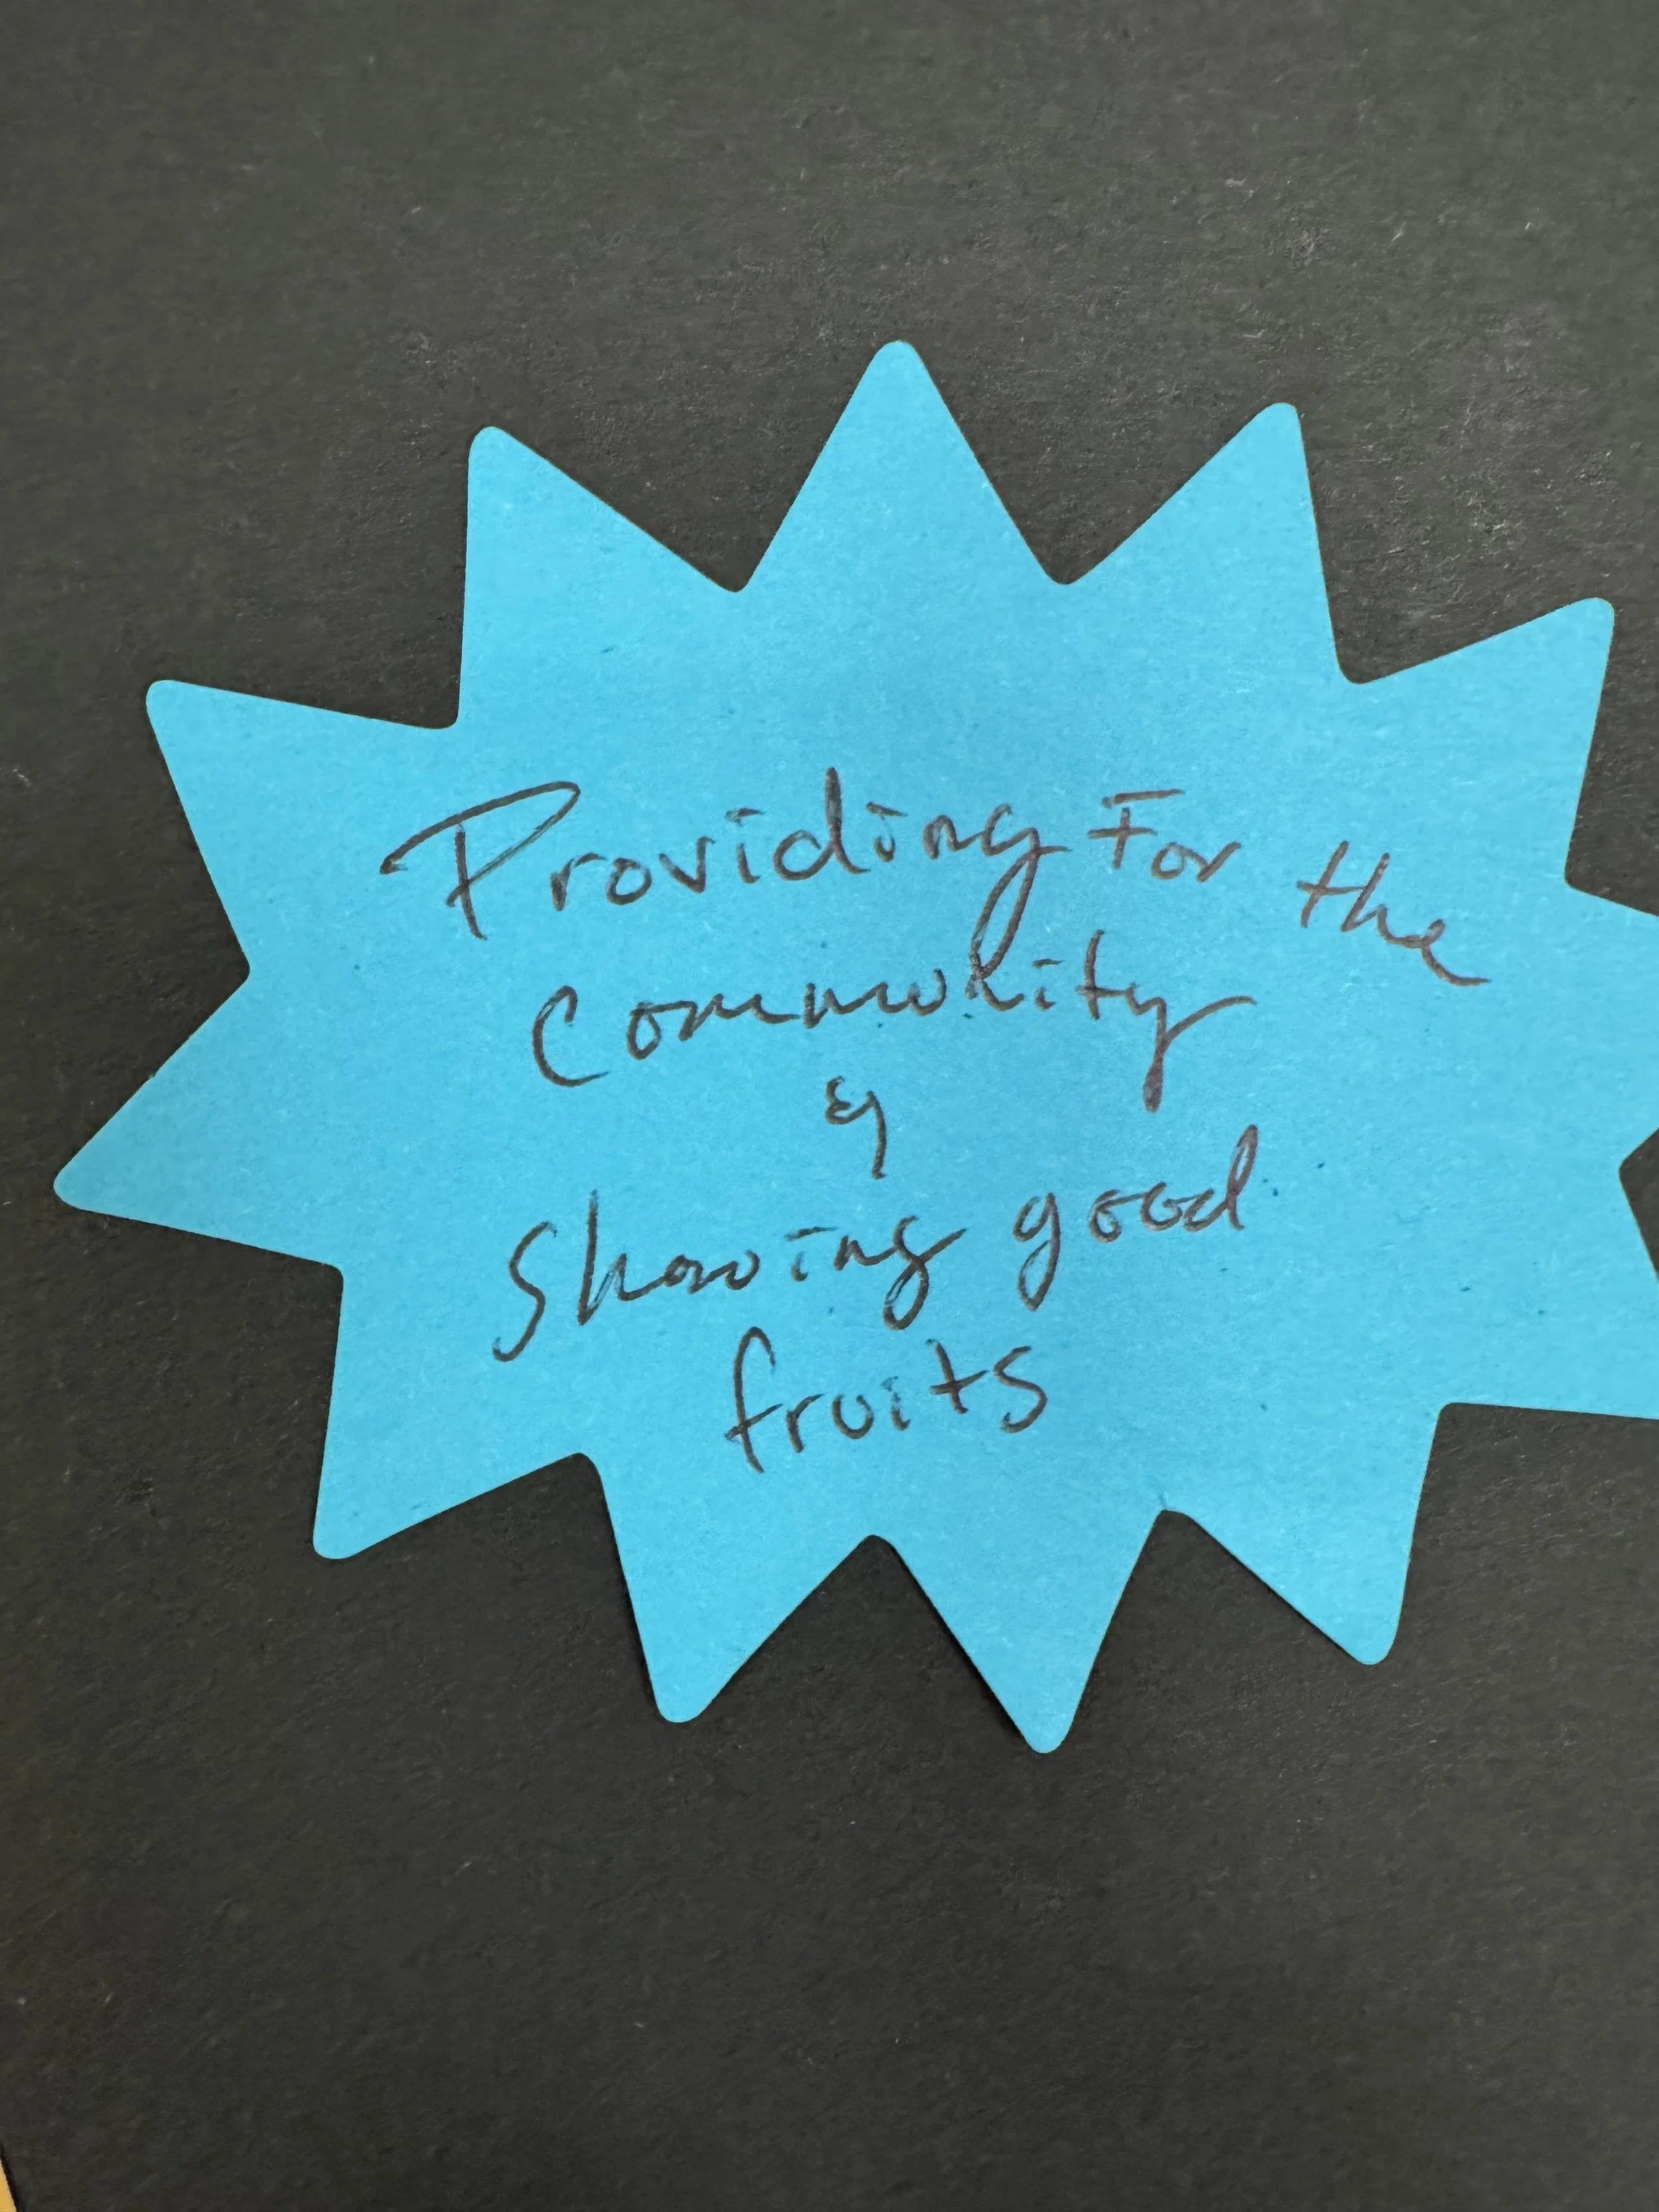 Providing For the
Community
&
Showing good
fruits